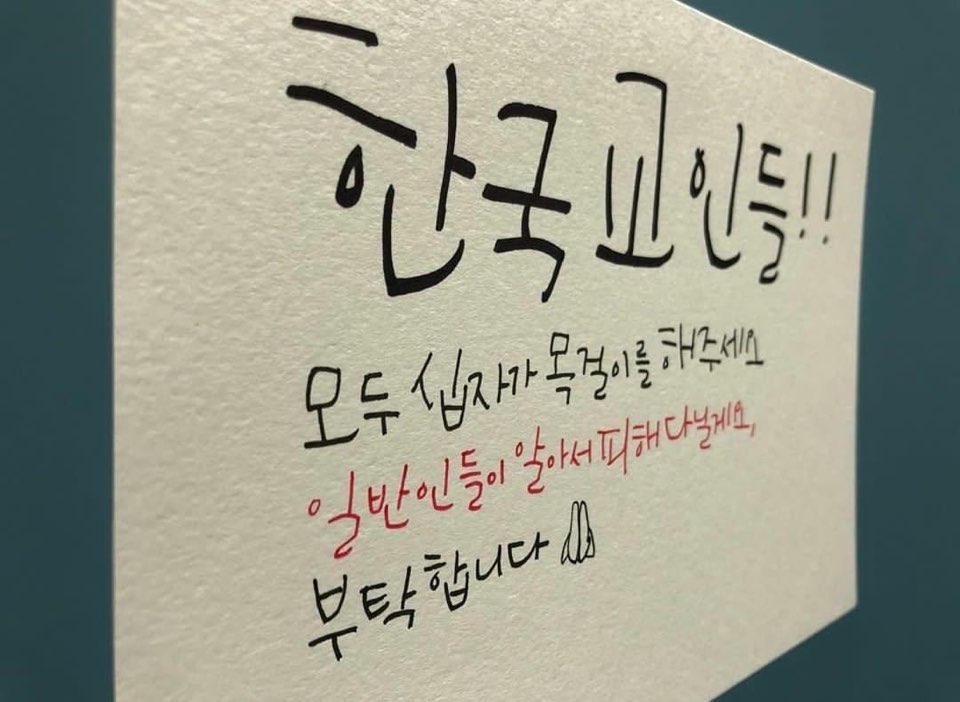 한국교인들!!
모두 십자가 목걸이를 해주세요
일반인들이 알아서 피해 다닐게요,
부탁합니다